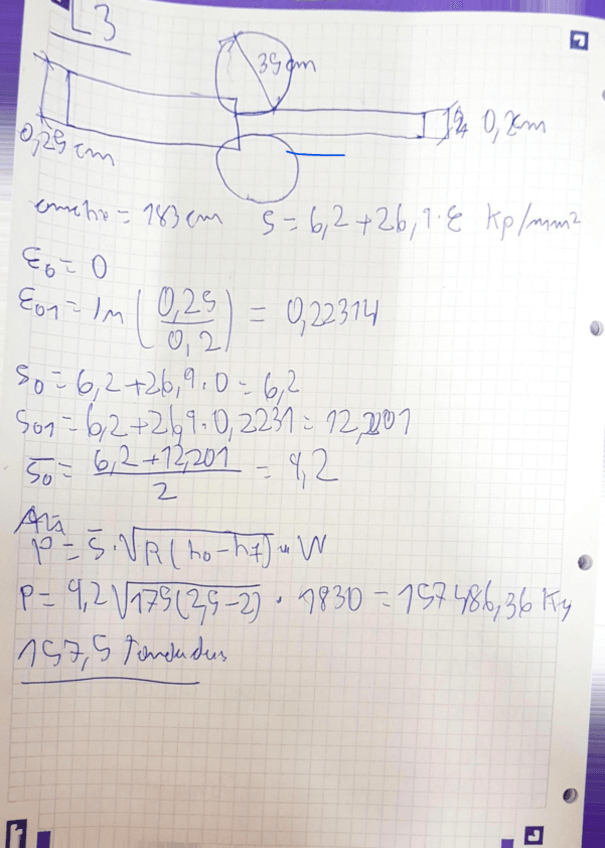 L3
35 cm
0,25 cm
0,2 cm
ancho = 183 cm S = 6,2 + 26,9 · ε Kp/mm²
ε₀ = 0
ε₀₁ = ln (0,25 / 0,2) = 0,22314
S₀ = 6,2 + 26,9 · 0 = 6,2
S₀₁ = 6,2 + 26,9 · 0,2231 = 12,201
S̄₀ = (6,2 + 12,201) / 2 = 9,2
P = S̄ · √R(h₀ - h₁) · W
P = 9,2 √175(2,5 - 2) · 1830 = 157486,36 Kg
157,5 Toneladas